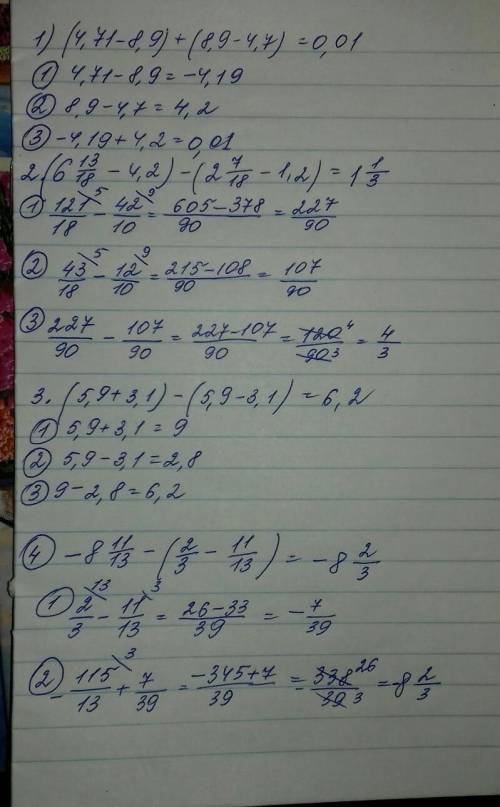 1) (4,71-8,9)+(8,9-4,7)=0,01
① 4,71-8,9=-4,19
② 8,9-4,7=4,2
③ -4,19+4,2=0,01
2. (6 13/18 - 4,2) - (2 7/18 - 1,2) = 1 1/3
① 121/18 \5 - 42/10 \9 = 605-378/90 = 227/90
② 43/18 \5 - 12/10 \9 = 215-108/90 = 107/90
③ 227/90 - 107/90 = 227-107/90 = 120/90 4/3 = 4/3
3. (5,9+3,1)-(5,9-3,1)=6,2
① 5,9+3,1=9
② 5,9-3,1=2,8
③ 9-2,8=6,2
④ -8 11/13 - (2/3 - 11/13) = -8 2/3
① 2/3 \13 - 11/13 \3 = 26-33/39 = -7/39
② -115/13 \3 + 7/39 = -345+7/39 = -338/39 26/3 = -8 2/3